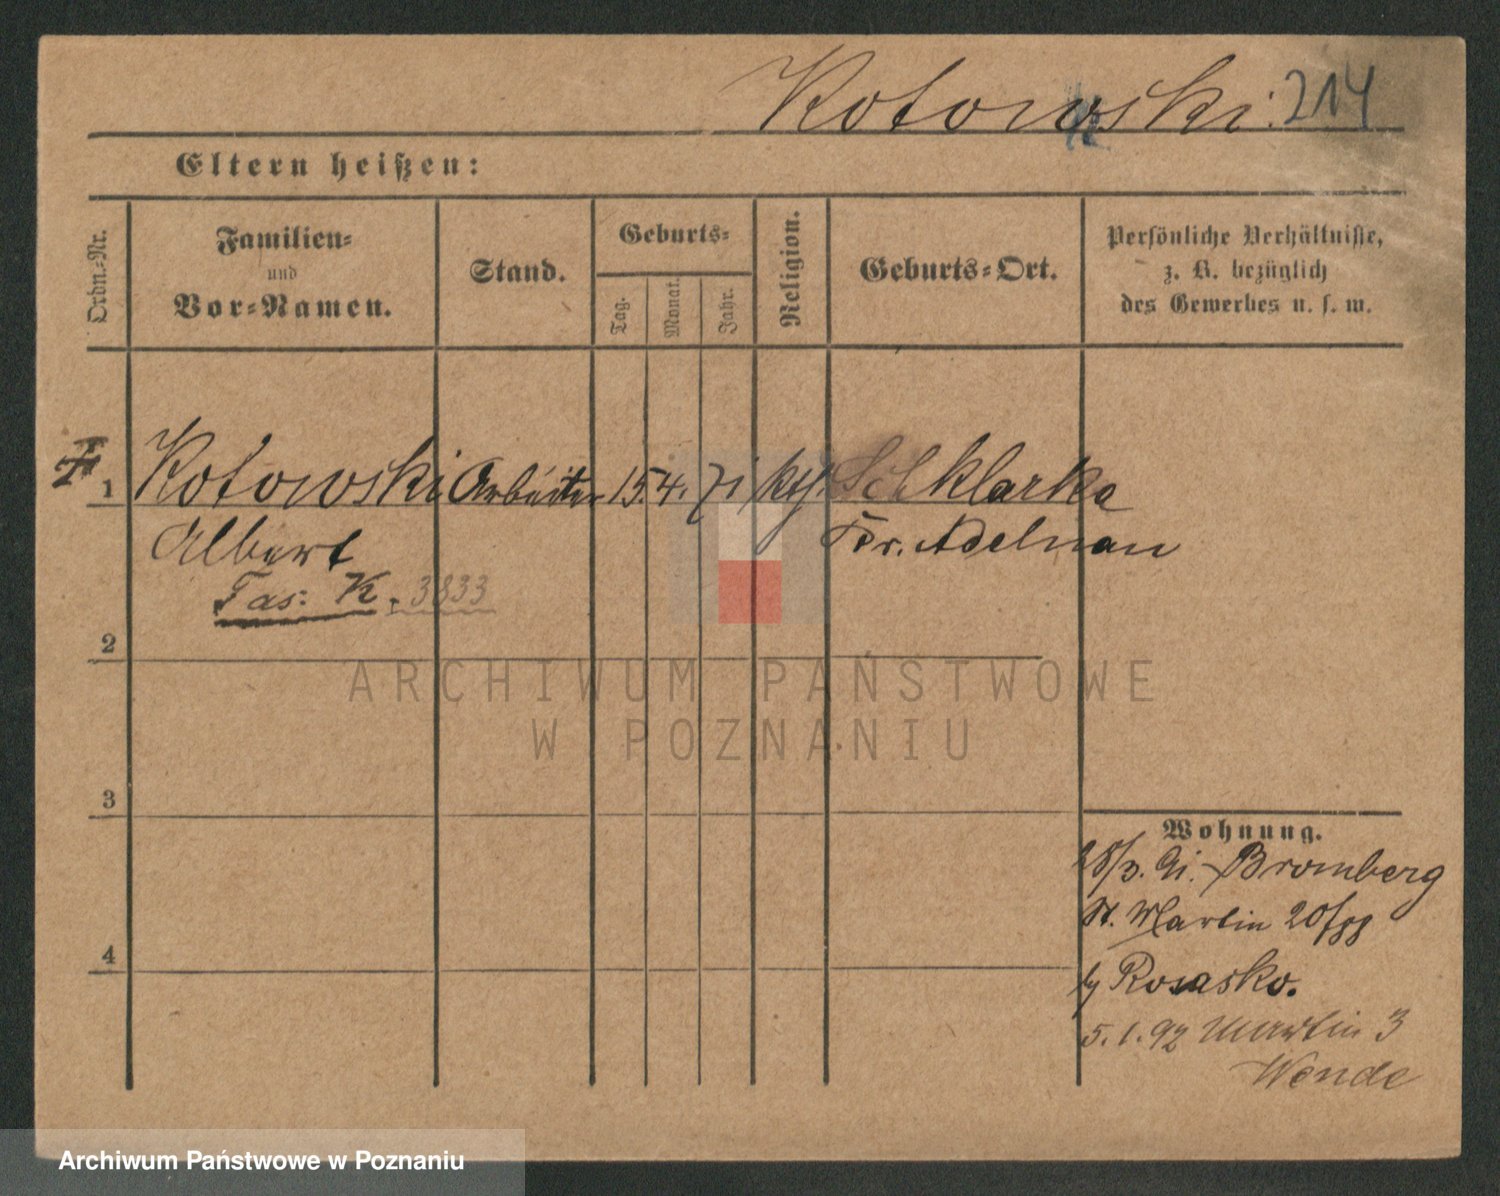 Kotowski. 214
Eltern heißen:
Ordn.-Nr.
Familien-
und
Vor-Namen.
Stand.
Geburts-
Tag.
Monat.
Jahr.
Religion.
Geburts-Ort.
Persönliche Verhältnisse,
z. B. bezüglich
des Gewerbes u. s. w.
1 Kotowski Arbeiter 15. 4. 71 kth. Schklarka
Albert Kr. Adelnau
Tas: K. 3833
2
3
4
Wohnung.
28/3. 91. Bromberg
St. Martin 20/
by Rosasko.
5.1.92 Martin 3
Wende
ARCHIWUM PAŃSTWOWE
W POZNANIU
Archiwum Państwowe w Poznaniu